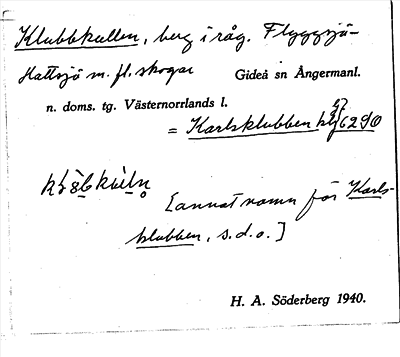 Klubbkullen, berg i råg. Flyggsjö-
Hattsjö m. fl. skogar Gideå sn Ångermanl.
n. doms. tg. Västernorrlands l.
= Karlsklubben 6290
[annat namn för Karls-
klubben, s.d.o.]
H. A. Söderberg 1940.